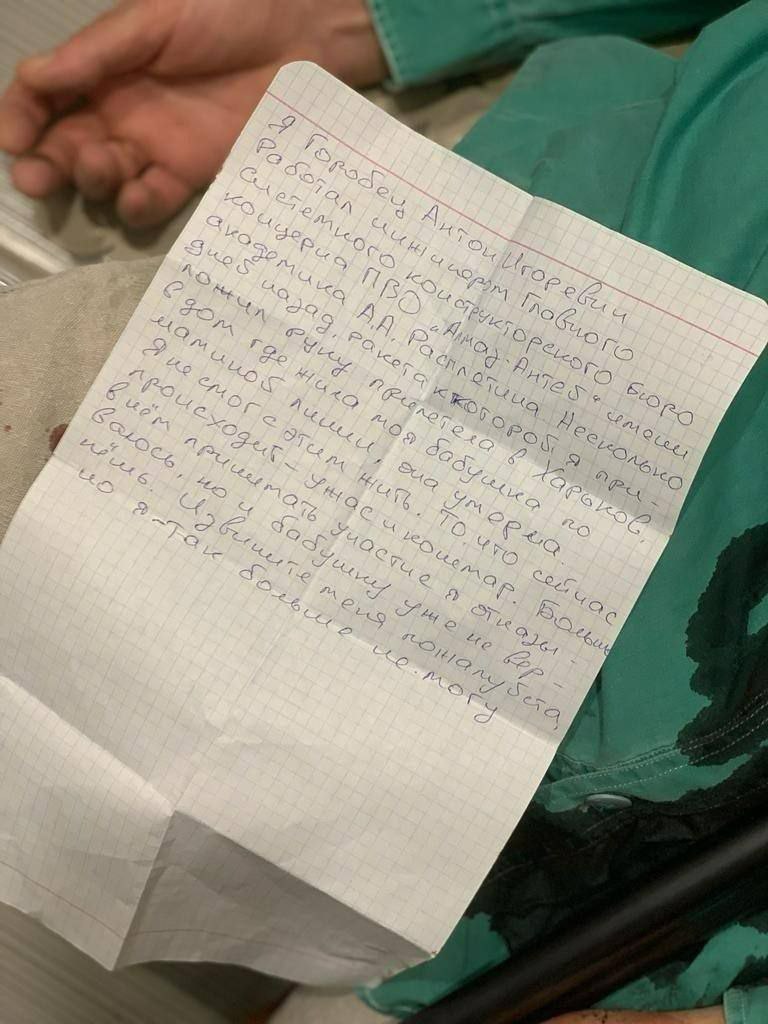 Я Горобец Антон Игоревич
Работал инжинером Главного
системного конструкторского бюро
концерна ПВО "Алмаз-Антей" имени
академика А.А. Расплетина Несколько
дней назад, ракета к которой я при-
ложил руку прилетела в Харьков,
в дом где жила моя бабушка по
маминой линии, она умерла.
Я не смог с этим жить. То, что сейчас
происходит - ужас и кошмар. Больше
в нём принимать участие я отказы-
ваюсь, но и бабушку уже не вер-
нёшь. Извините меня пожалуйста,
но я - так больше не могу